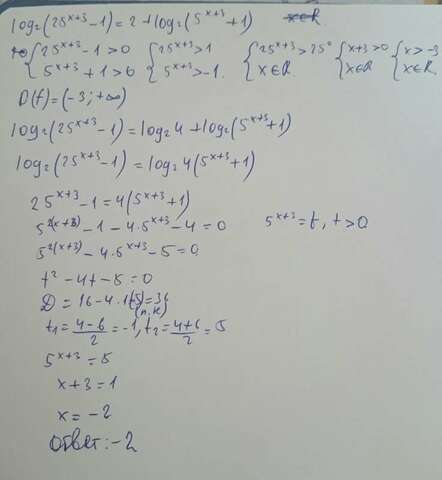 log₂(25ˣ⁺³-1)=2+log₂(5ˣ⁺³+1)
{25ˣ⁺³-1>0 {25ˣ⁺³>1 {25ˣ⁺³>25⁰ {x+3>0 {x>-3
5ˣ⁺³+1>0 5ˣ⁺³>-1. x∈R. x∈R x∈R.
D(f)=(-3;+∞)
log₂(25ˣ⁺³-1)=log₂4+log₂(5ˣ⁺³+1)
log₂(25ˣ⁺³-1)=log₂4(5ˣ⁺³+1)
25ˣ⁺³-1=4(5ˣ⁺³+1)
5²⁽ˣ⁺³⁾-1-4·5ˣ⁺³-4=0 5ˣ⁺³=t, t>0
5²⁽ˣ⁺³⁾-4·5ˣ⁺³-5=0
t²-4t-5=0
D=16-4·1(-5)=36
(п.к)
t₁=4-6/2=-1, t₂=4+6/2=5
5ˣ⁺³=5
x+3=1
x=-2
Ответ:-2